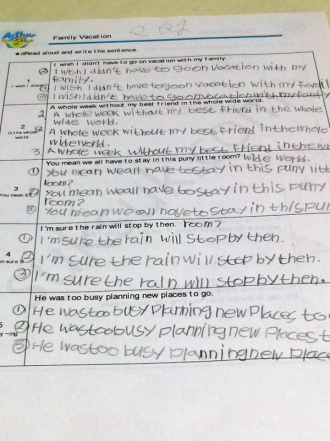 Arthur
Family Vacation
★Read aloud and write the sentence.
I wish I didn't have to go on vacation with my family.
① I wish I didn't have to go on vacation with my
family.
② I wish I didn't have to go on vacation with my famil
③ I wish I didn't have to go on vacation with my family
A whole week without my best friend in the whole wide world.
2 A whole week without my best friend in the whole
wide world.
2 A whole week without my best friend in the whole
wide world.
3 A whole week without my best friend in the wh
wide world.
3
You mean we all have to stay in this puny little room?
① You mean we all have to stay in this puny litt
room?
② You mean we all have to stay in this puny
room?
③ You mean we all have to stay in this pun
room?
4
I'm sure the rain will stop by then.
① I'm sure the rain will stop by then.
② I'm sure the rain will stop by then.
③ I'm sure the rain will stop by then.
5
He was too busy planning new places to go.
① He was too busy planning new places to
② He was too busy planning new places t
③ He was too busy planning new place